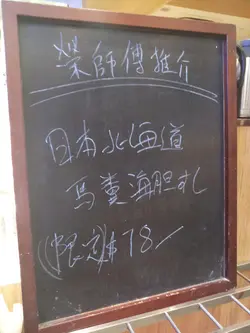 榮師傅推介
日本北海道
馬糞海胆札
(限定)$78